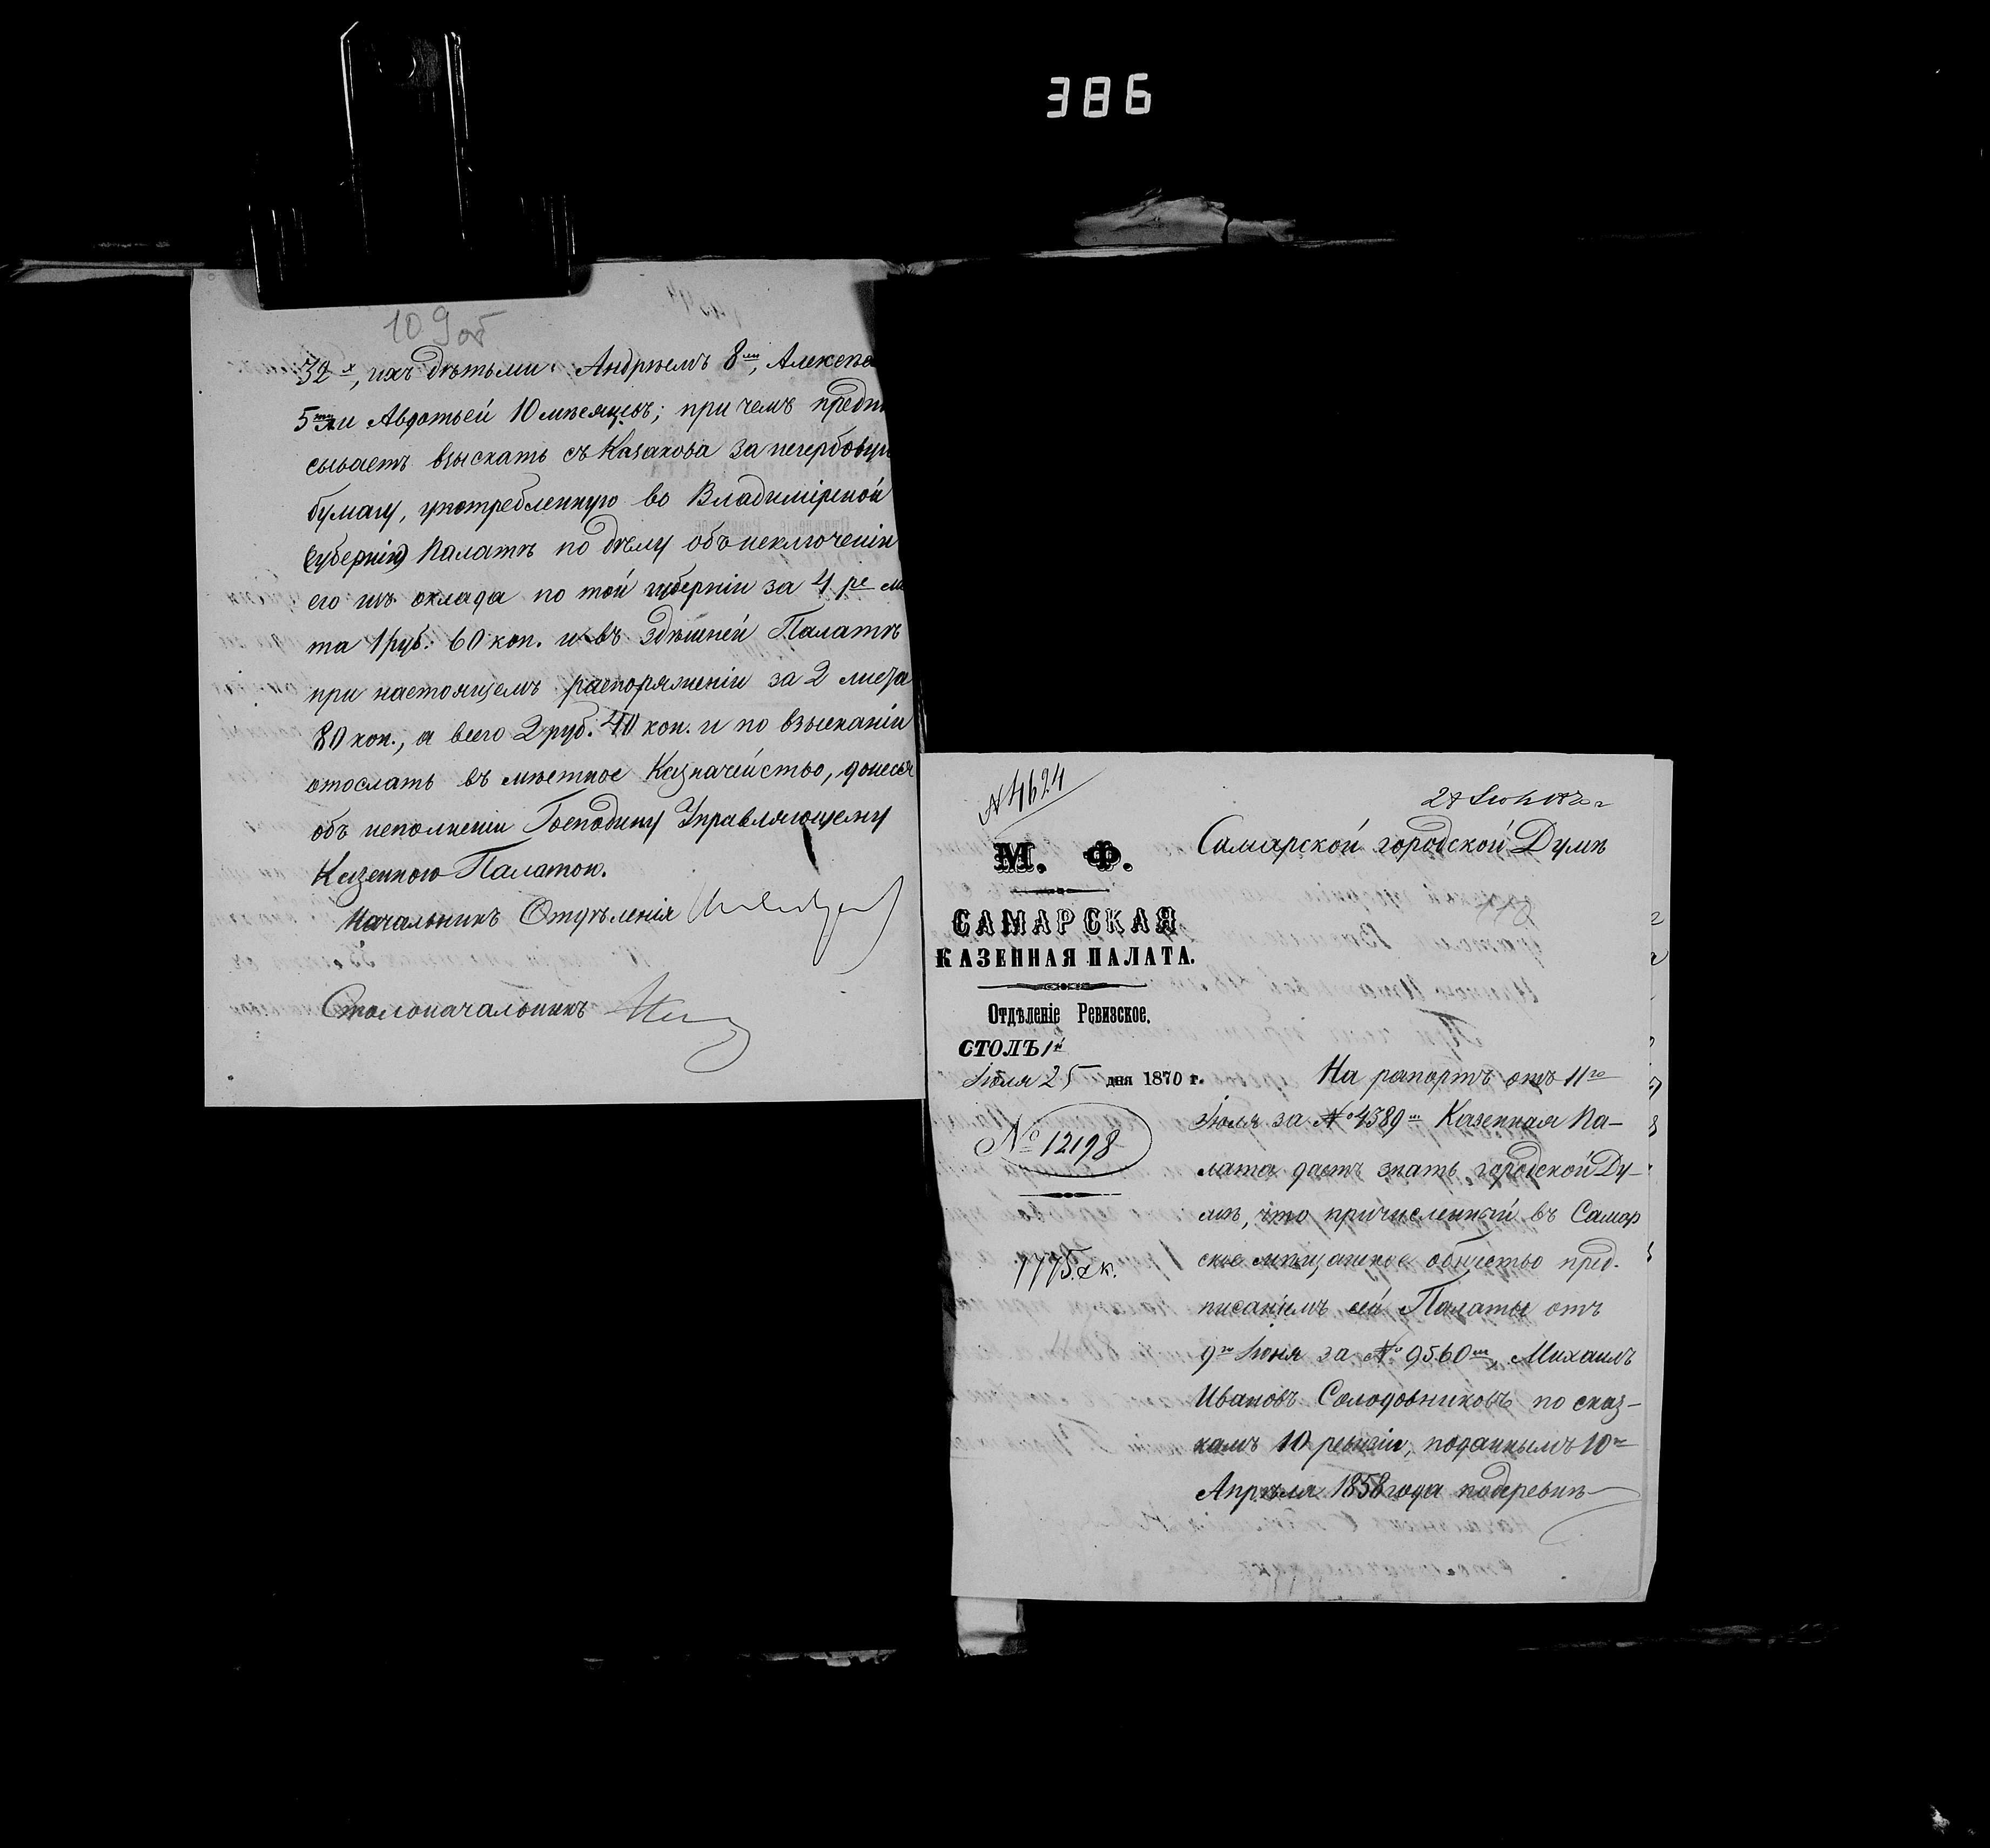 386
109об
32х, ихъ дѣтьми: Андреемъ 8ми, Алексѣе
5ти и Авдотьей 10 мѣсяцевъ; при чемъ предпи
сываетъ взыскать съ Казакова за негербовую
бумагу, употребленную во Владимірской
(губерніи) Палатѣ по дѣлу объ исключеніи
его изъ оклада по той губерніи за 4ре лис
та 1 руб. 60 коп. и въ здѣшней Палатѣ
при настоящемъ распоряженіи за 2 листа
80 коп., а всего 2 руб. 40 коп. и по взысканіи
отослать въ мѣстное Казначейство, донеся
объ исполненіи Господину Управляющему
Казенною Палатою.
Начальникъ Отдѣленія
Столоначальникъ
№ 4624
М. Ф.
САМАРСКАЯ
КАЗЕННАЯ ПАЛАТА.
Отдѣленіе Ревизское.
СТОЛЪ 1й
Іюля 25 дня 1870 г.
№ 12198
Самарской городской Думѣ
На рапортъ отъ 11го
Іюля за № 4389м Казенная Па-
лата даетъ знать городской Ду-
мѣ, что причисленный въ Самар
ское мѣщанское общество пред-
писаніемъ сей Палаты отъ
9го Іюня за № 9560м, Михаилъ
Ивановъ Солодовниковъ по сказ-
камъ 10 ревизіи, поданнымъ 10го
Апрѣля 1858 года подеревнѣ